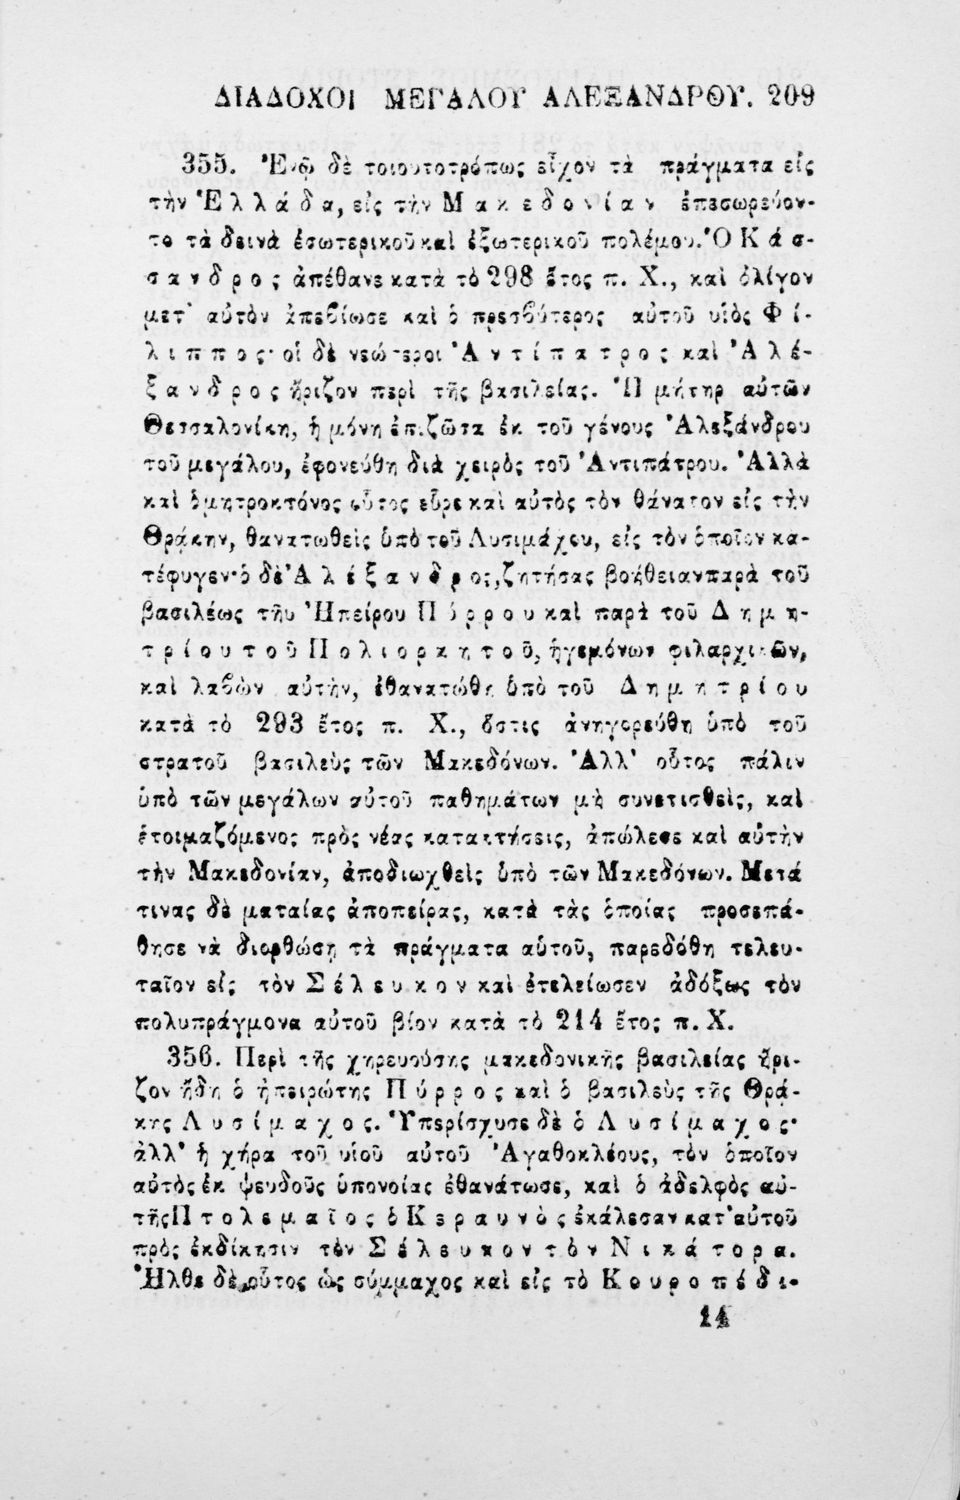 ΔΙΑΔΟΧΟΙ ΜΕΓΑΛΟΥ ΑΛΕΞΑΝΔΡΟΥ. 209
355. Ἐνῷ δὲ τοιουτοτρόπως εἶχον τὰ πράγματα εἰς
τὴν Ἑλλάδα, εἰς τὴν Μακεδονίαν ἐπεσωρεύον-
το τὰ δεινὰ ἐσωτερικοῦ καὶ ἐξωτερικοῦ πολέμου. Ὁ Κάσ-
σανδρος ἀπέθανε κατὰ τὸ 298 ἔτος π. Χ., καὶ ὀλίγον
μετ' αὐτὸν ἀπεβίωσε καὶ ὁ πρεσβύτερος αὐτοῦ υἱὸς Φί-
λιππος· οἱ δὲ νεώτεροι Ἀντίπατρος καὶ Ἀλέ-
ξανδρος ἤριζον περὶ τῆς βασιλείας. Ἡ μήτηρ αὐτῶν
Θεσσαλονίκη, ἡ μόνη ἐπιζῶσα ἐκ τοῦ γένους Ἀλεξάνδρου
τοῦ μεγάλου, ἐφονεύθη διὰ χειρὸς τοῦ Ἀντιπάτρου. Ἀλλὰ
καὶ ὁ μητροκτόνος οὗτος εὗρε καὶ αὐτὸς τὸν θάνατον εἰς τὴν
Θράκην, θανατωθεὶς ὑπὸ τοῦ Λυσιμάχου, εἰς τὸν ὁποῖον κα-
τέφυγεν· ὁ δὲ Ἀλέξανδρος, ζητήσας βοήθειαν παρὰ τοῦ
βασιλέως τῆς Ἠπείρου Πύρρου καὶ παρὰ τοῦ Δημη-
τρίου τοῦ Πολιορκητοῦ, ἡγεμόνων φιλαρχικῶν,
καὶ λαβὼν αὐτὴν, ἐθανατώθη ὑπὸ τοῦ Δημητρίου
κατὰ τὸ 293 ἔτος π. Χ., ὅστις ἀνηγορεύθη ὑπὸ τοῦ
στρατοῦ βασιλεὺς τῶν Μακεδόνων. Ἀλλ' οὗτος πάλιν
ὑπὸ τῶν μεγάλων αὐτοῦ παθημάτων μὴ συνετισθεὶς, καὶ
ἑτοιμαζόμενος πρὸς νέας κατακτήσεις, ἀπώλεσε καὶ αὐτὴν
τὴν Μακεδονίαν, ἀποδιωχθεὶς ὑπὸ τῶν Μακεδόνων. Μετά
τινας δὲ ματαίας ἀποπείρας, κατὰ τὰς ὁποίας προσεπά-
θησε νὰ διορθώσῃ τὰ πράγματα αὑτοῦ, παρεδόθη τελευ-
ταῖον εἰς τὸν Σέλευκον καὶ ἐτελείωσεν ἀδόξως τὸν
πολυπράγμονα αὐτοῦ βίον κατὰ τὸ 214 ἔτος π. Χ.
356. Περὶ τῆς χηρευούσης μακεδονικῆς βασιλείας ἤρι-
ζον ἤδη ὁ ἠπειρώτης Πύρρος καὶ ὁ βασιλεὺς τῆς Θρά-
κης Λυσίμαχος. Ὑπερίσχυσε δὲ ὁ Λυσίμαχος·
ἀλλ' ἡ χήρα τοῦ υἱοῦ αὐτοῦ Ἀγαθοκλέους, τὸν ὁποῖον
αὐτὸς ἐκ ψευδοῦς ὑπονοίας ἐθανάτωσε, καὶ ὁ ἀδελφὸς αὐ-
τῆς Πτολεμαῖος ὁ Κεραυνὸς ἐκάλεσαν κατ' αὐτοῦ
πρὸς ἐκδίκησιν τὸν Σέλευκον τὸν Νικάτορα.
Ἦλθε δὲ οὗτος ὡς σύμμαχος καὶ εἰς τὸ Κουροπέδι-
14